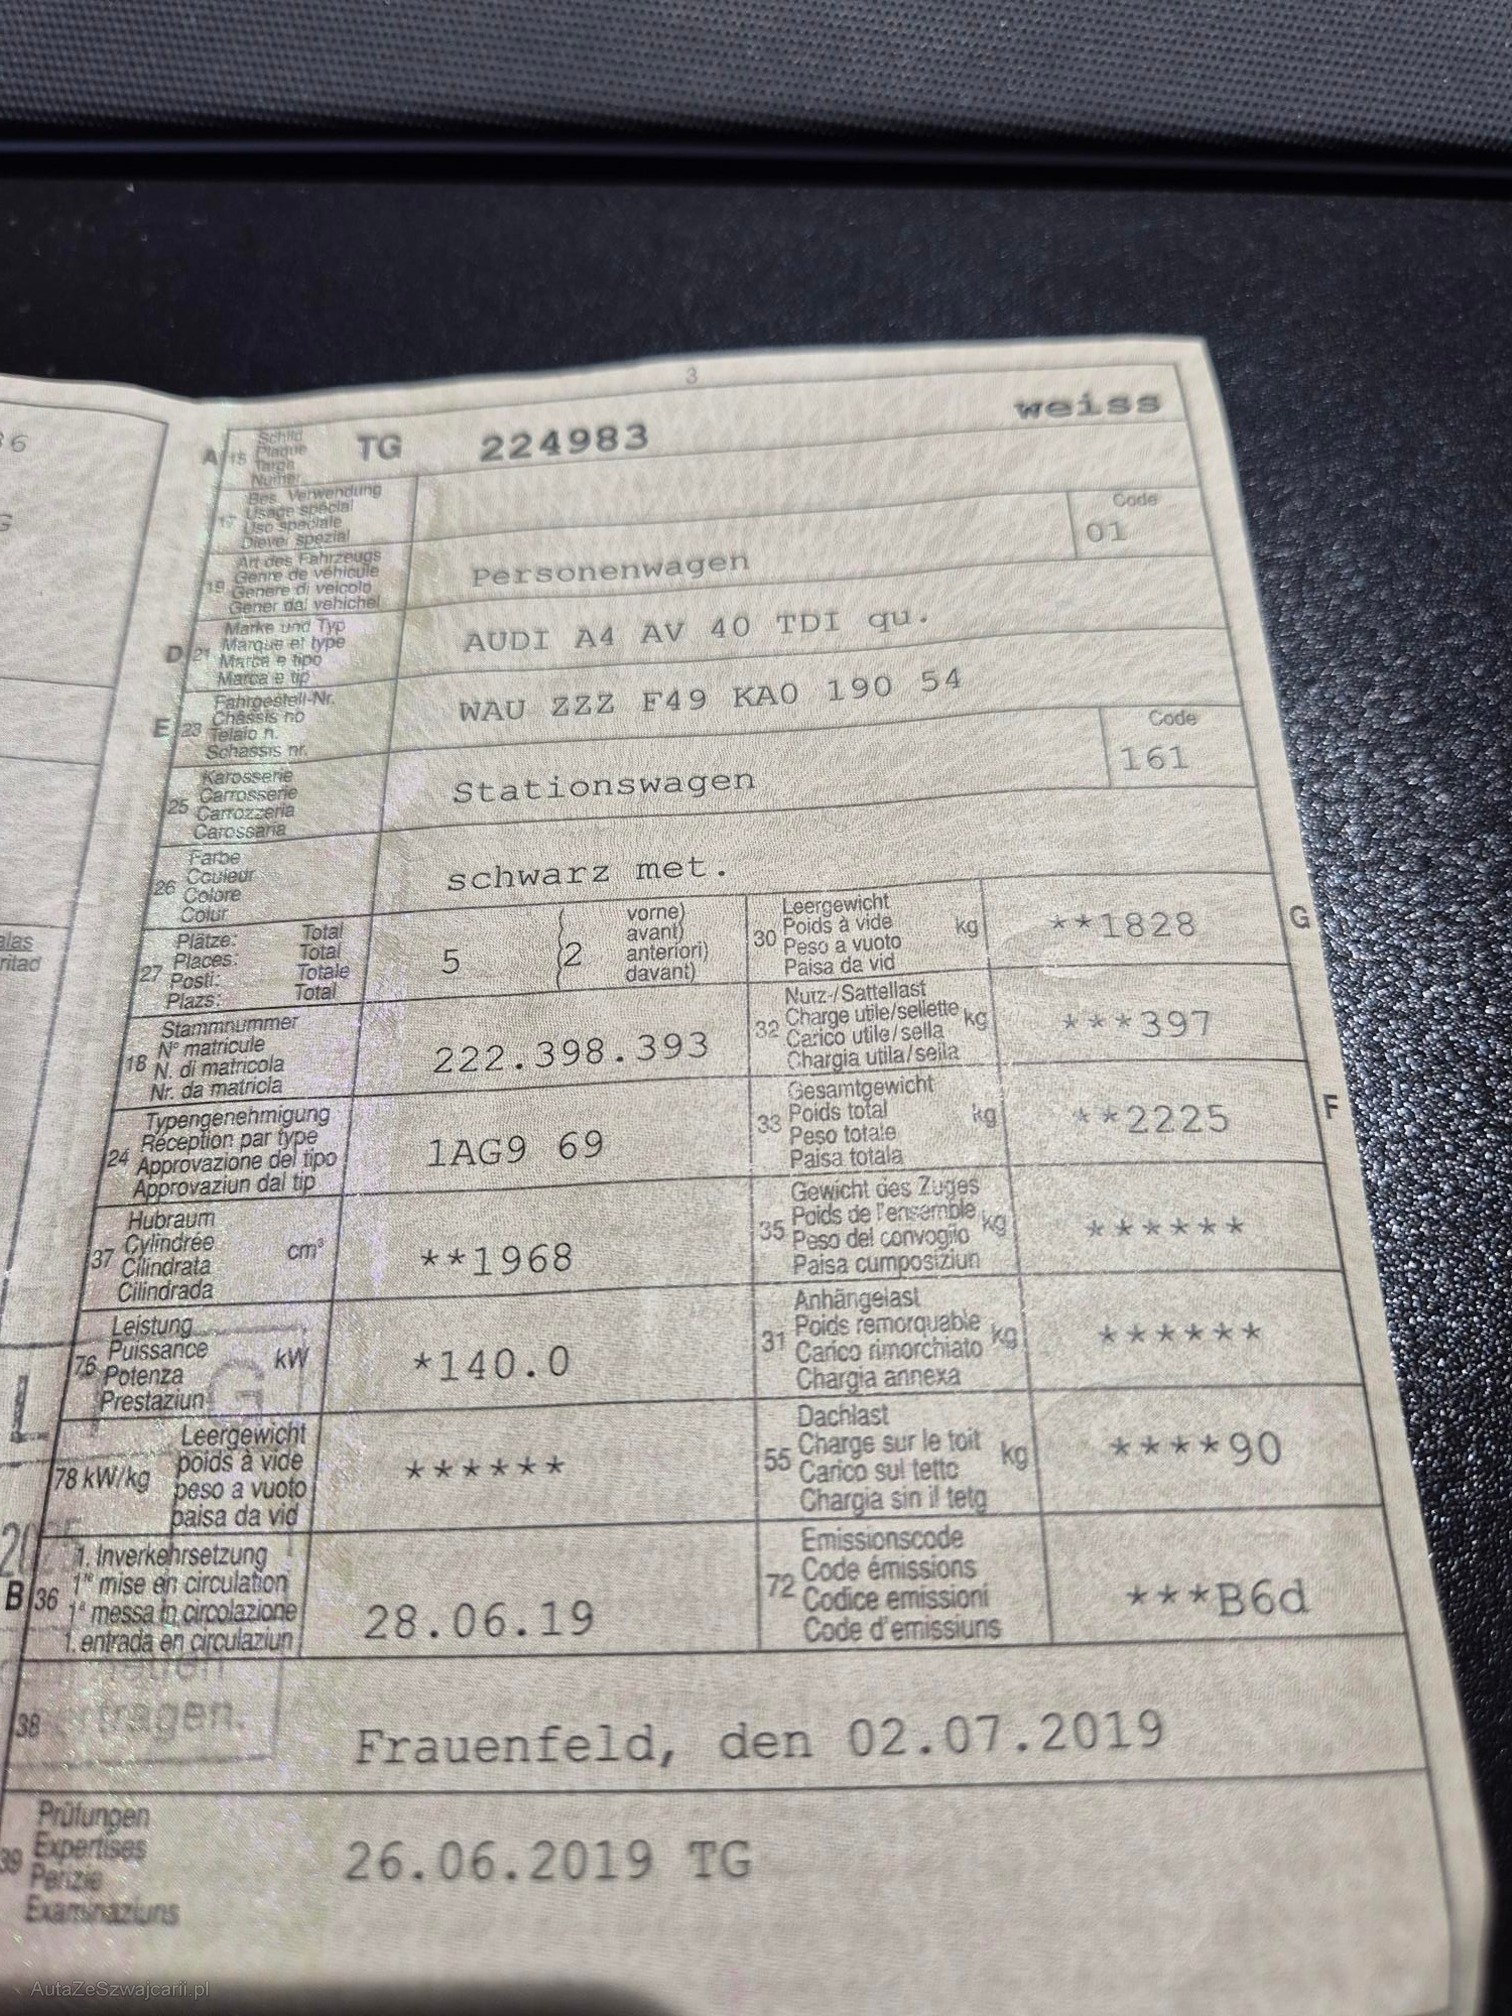 3
A 15 Schild
Plaque
Targa
Numer
TG 224983 weiss
17 Bes. Verwendung
Usage spécial
Uso speciale
Diever spezial
19 Art des Fahrzeugs
Genre de véhicule
Genere di veicolo
Gener dal vehichel
Personenwagen
Code
01
D 21 Marke und Typ
Marque et type
Marca e tipo
Marca e tip
AUDI A4 AV 40 TDI qu.
E 23 Fahrgestell-Nr.
Châssis no
Telaio n.
Schassis nr.
WAU ZZZ F49 KA0 190 54
25 Karosserie
Carrosserie
Carrozzeria
Carossaria
Stationswagen
Code
161
26 Farbe
Couleur
Colore
Colur
schwarz met.
27 Plätze: Total
Places: Total
Posti: Totale
Plazs: Total
5 (2 vorne)
avant)
anteriori)
davant)
30 Leergewicht
Poids à vide
Peso a vuoto
Paisa da vid
kg **1828 G
18 Stammnummer
N° matricule
N. di matricola
Nr. da matricla
222.398.393
32 Nutz-/Sattellast
Charge utile/sellette
Carico utile/sella
Chargia utila/sella
kg ***397
24 Typengenehmigung
Réception par type
Approvazione del tipo
Approvaziun dal tip
1AG9 69
33 Gesamtgewicht
Poids total
Peso totale
Paisa totala
kg **2225 F
37 Hubraum
Cylindrée
Cilindrata
Cilindrada
cm³ **1968
35 Gewicht des Zuges
Poids de l'ensemble
Peso del convoglio
Paisa cumposiziun
kg ******
76 Leistung
Puissance
Potenza
Prestaziun
kW *140.0
31 Anhängelast
Poids remorquable
Carico rimorchiato
Chargia annexa
kg ******
78 kW/kg Leergewicht
poids à vide
peso a vuoto
paisa da vid
******
55 Dachlast
Charge sur le toit
Carico sul tetto
Chargia sin il tetg
kg ****90
B 36 1. Inverkehrsetzung
1re mise en circulation
1a messa in circolazione
1. entrada en circulaziun
28.06.19
72 Emissionscode
Code émissions
Codice emissioni
Code d'emissiuns
***B6d
38 Frauenfeld, den 02.07.2019
39 Prüfungen
Expertises
Perizie
Examinaziuns
26.06.2019 TG
AutaZeSzwajcarii.pl